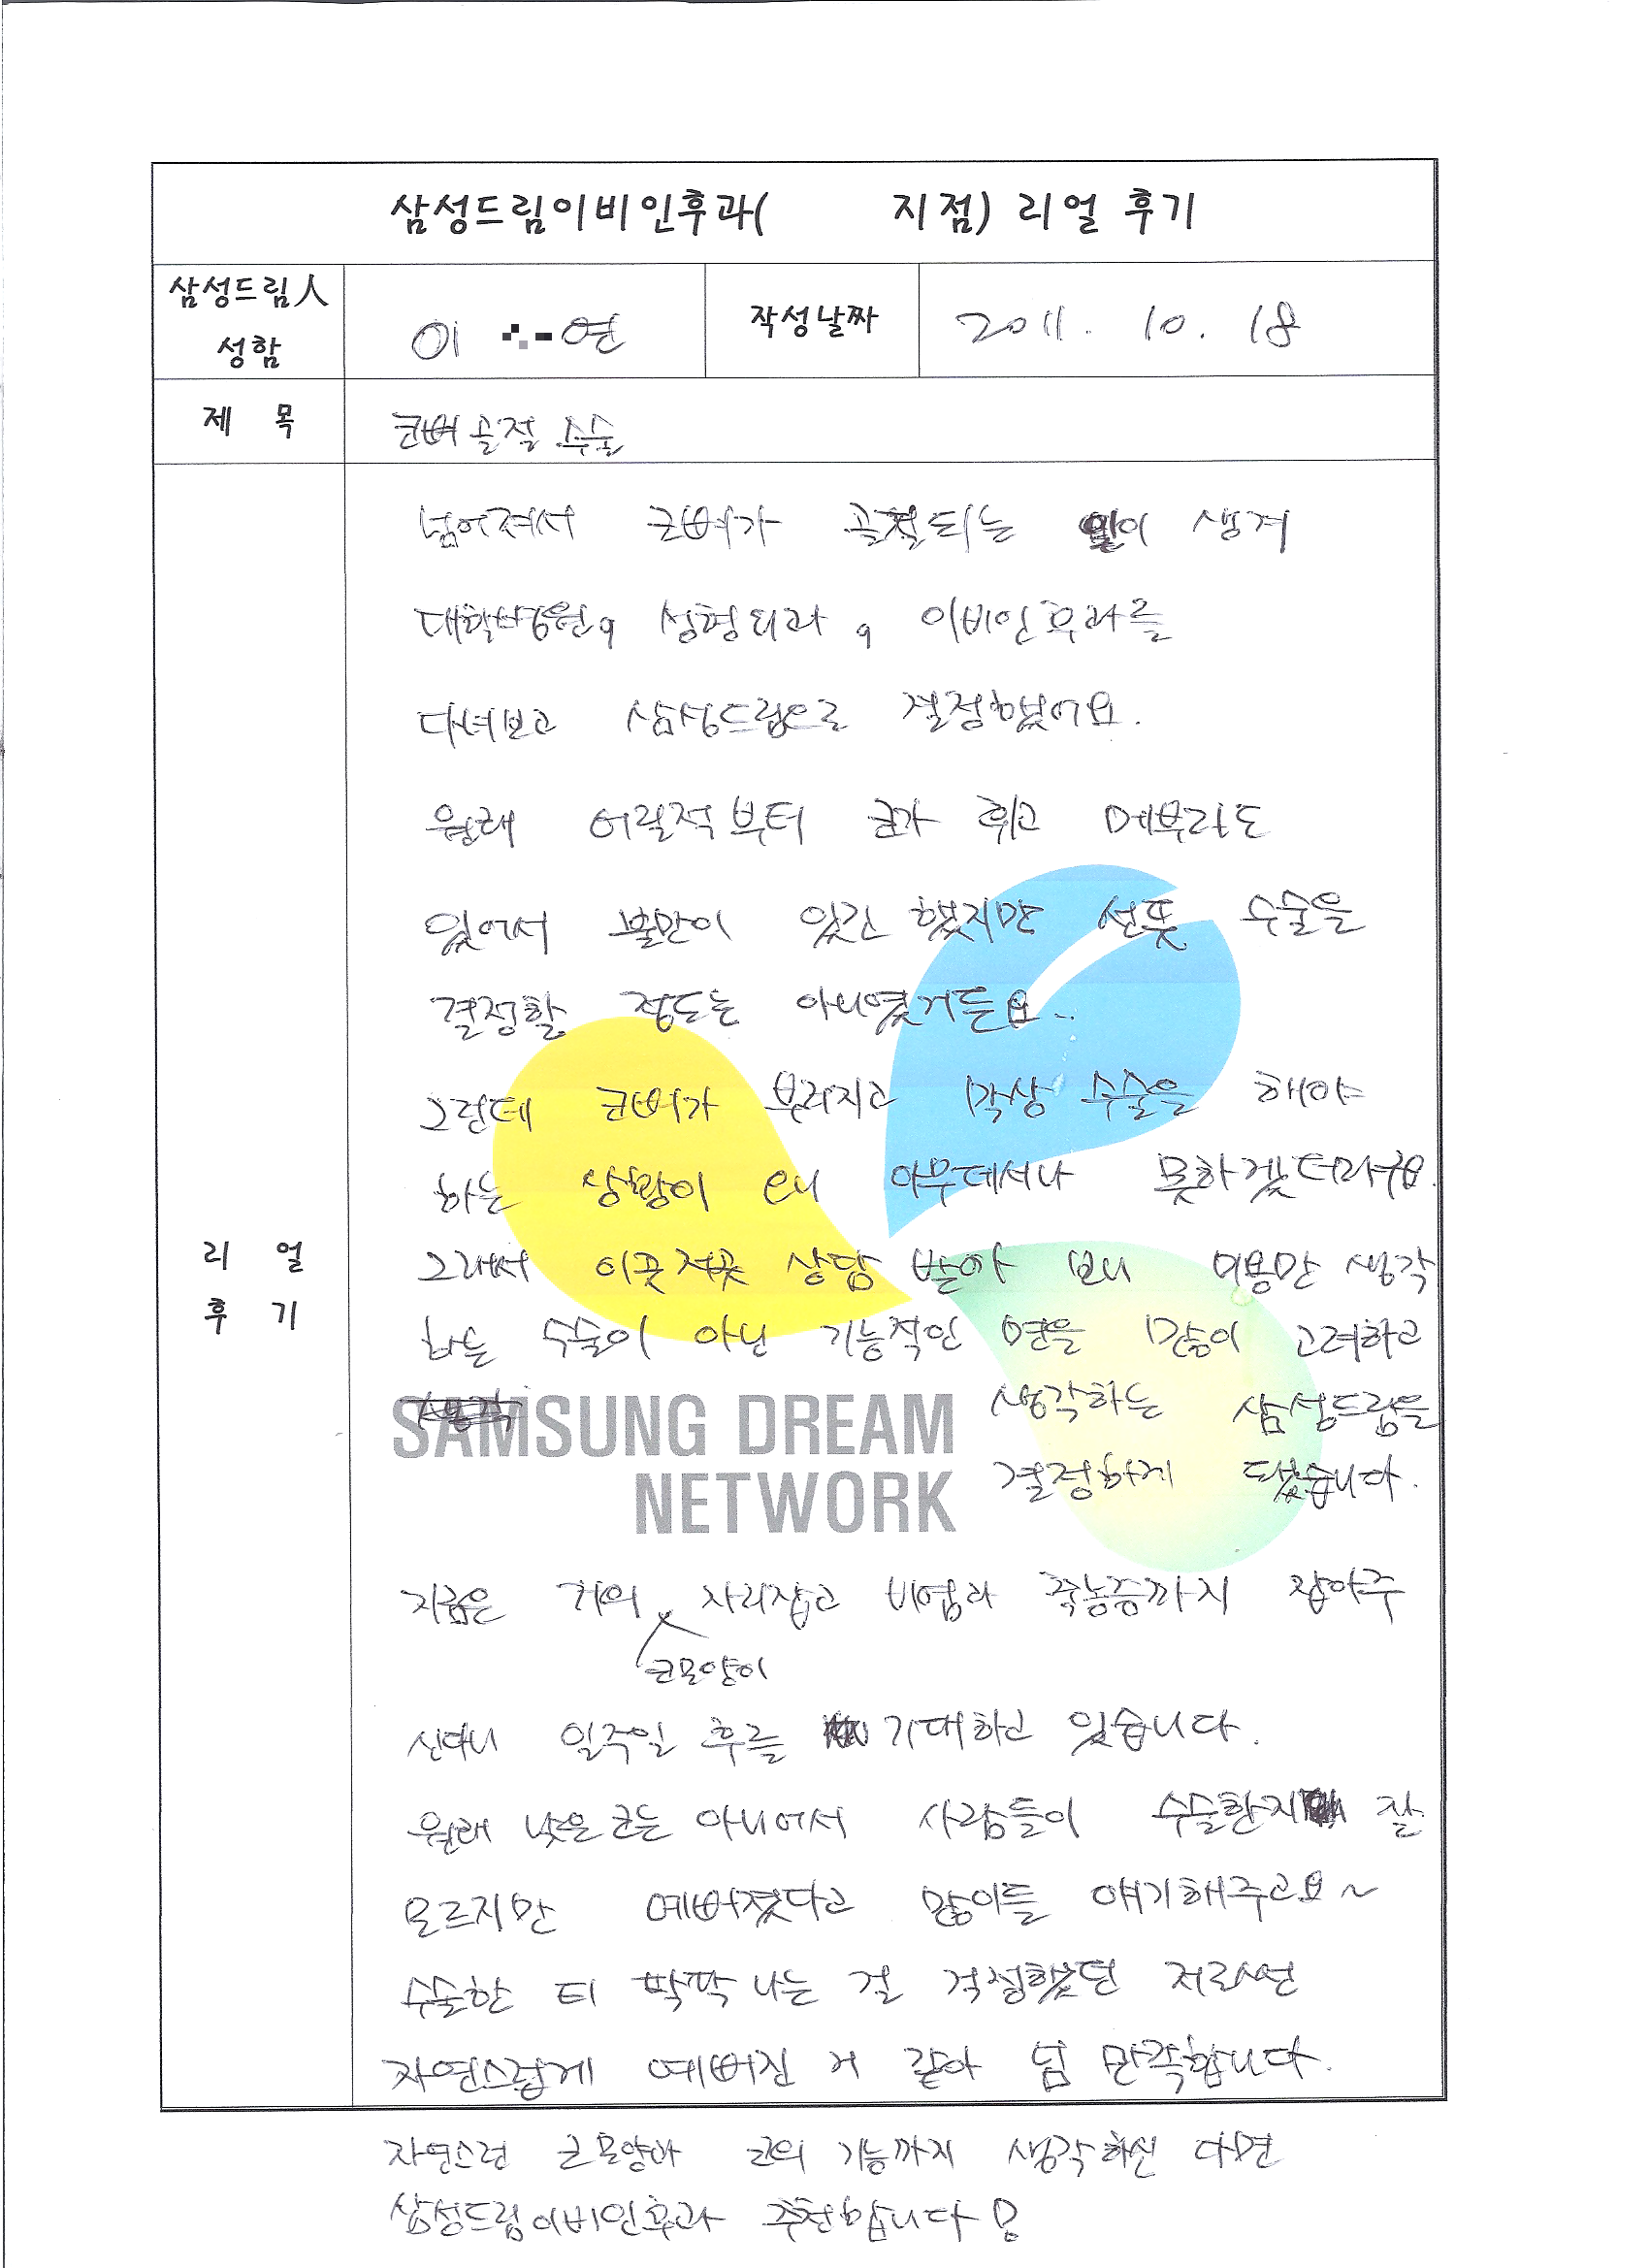 삼성드림이비인후과( 지점) 리얼 후기
삼성드림人 성함
이 연
작성날짜
2011. 10. 18
제 목
코뼈 골절 수술
리 얼 후 기
넘어져서 코뼈가 골절되는 일이 생겨
대학병원, 성형외과, 이비인후과를
다녀보고 삼성드림으로 결정했어요.
원래 어릴적부터 코가 휘고 메부리도
있어서 불만이 있긴 했지만 선뜻 수술을
결정할 정도는 아니였거든요..
그런데 코뼈가 부러지고 막상 수술을 해야
하는 상황이 오니 아무데서나 못하겠더라구요.
그래서 이곳저곳 상담 받아 보니 미용만 생각
하는 수술이 아닌 기능적인 면을 많이 고려하고
생각하는 삼성드림을
결정하게 됐습니다.
SAMSUNG DREAM
NETWORK
지금은 거의 코모양이 자리잡고 비염과 축농증까지 잡아주
신다니 일주일 후를 기대하고 있습니다.
원래 낮은코는 아니어서 사람들이 수술한지 잘
모르지만 예뻐졌다고 많이들 얘기해주고요~
수술한 티 팍팍 나는 걸 걱정했던 저로선
자연스럽게 예뻐진 거 같아 넘 만족합니다.
자연스런 코모양과 코의 기능까지 생각하신 다면
삼성드림이비인후과 추천합니다